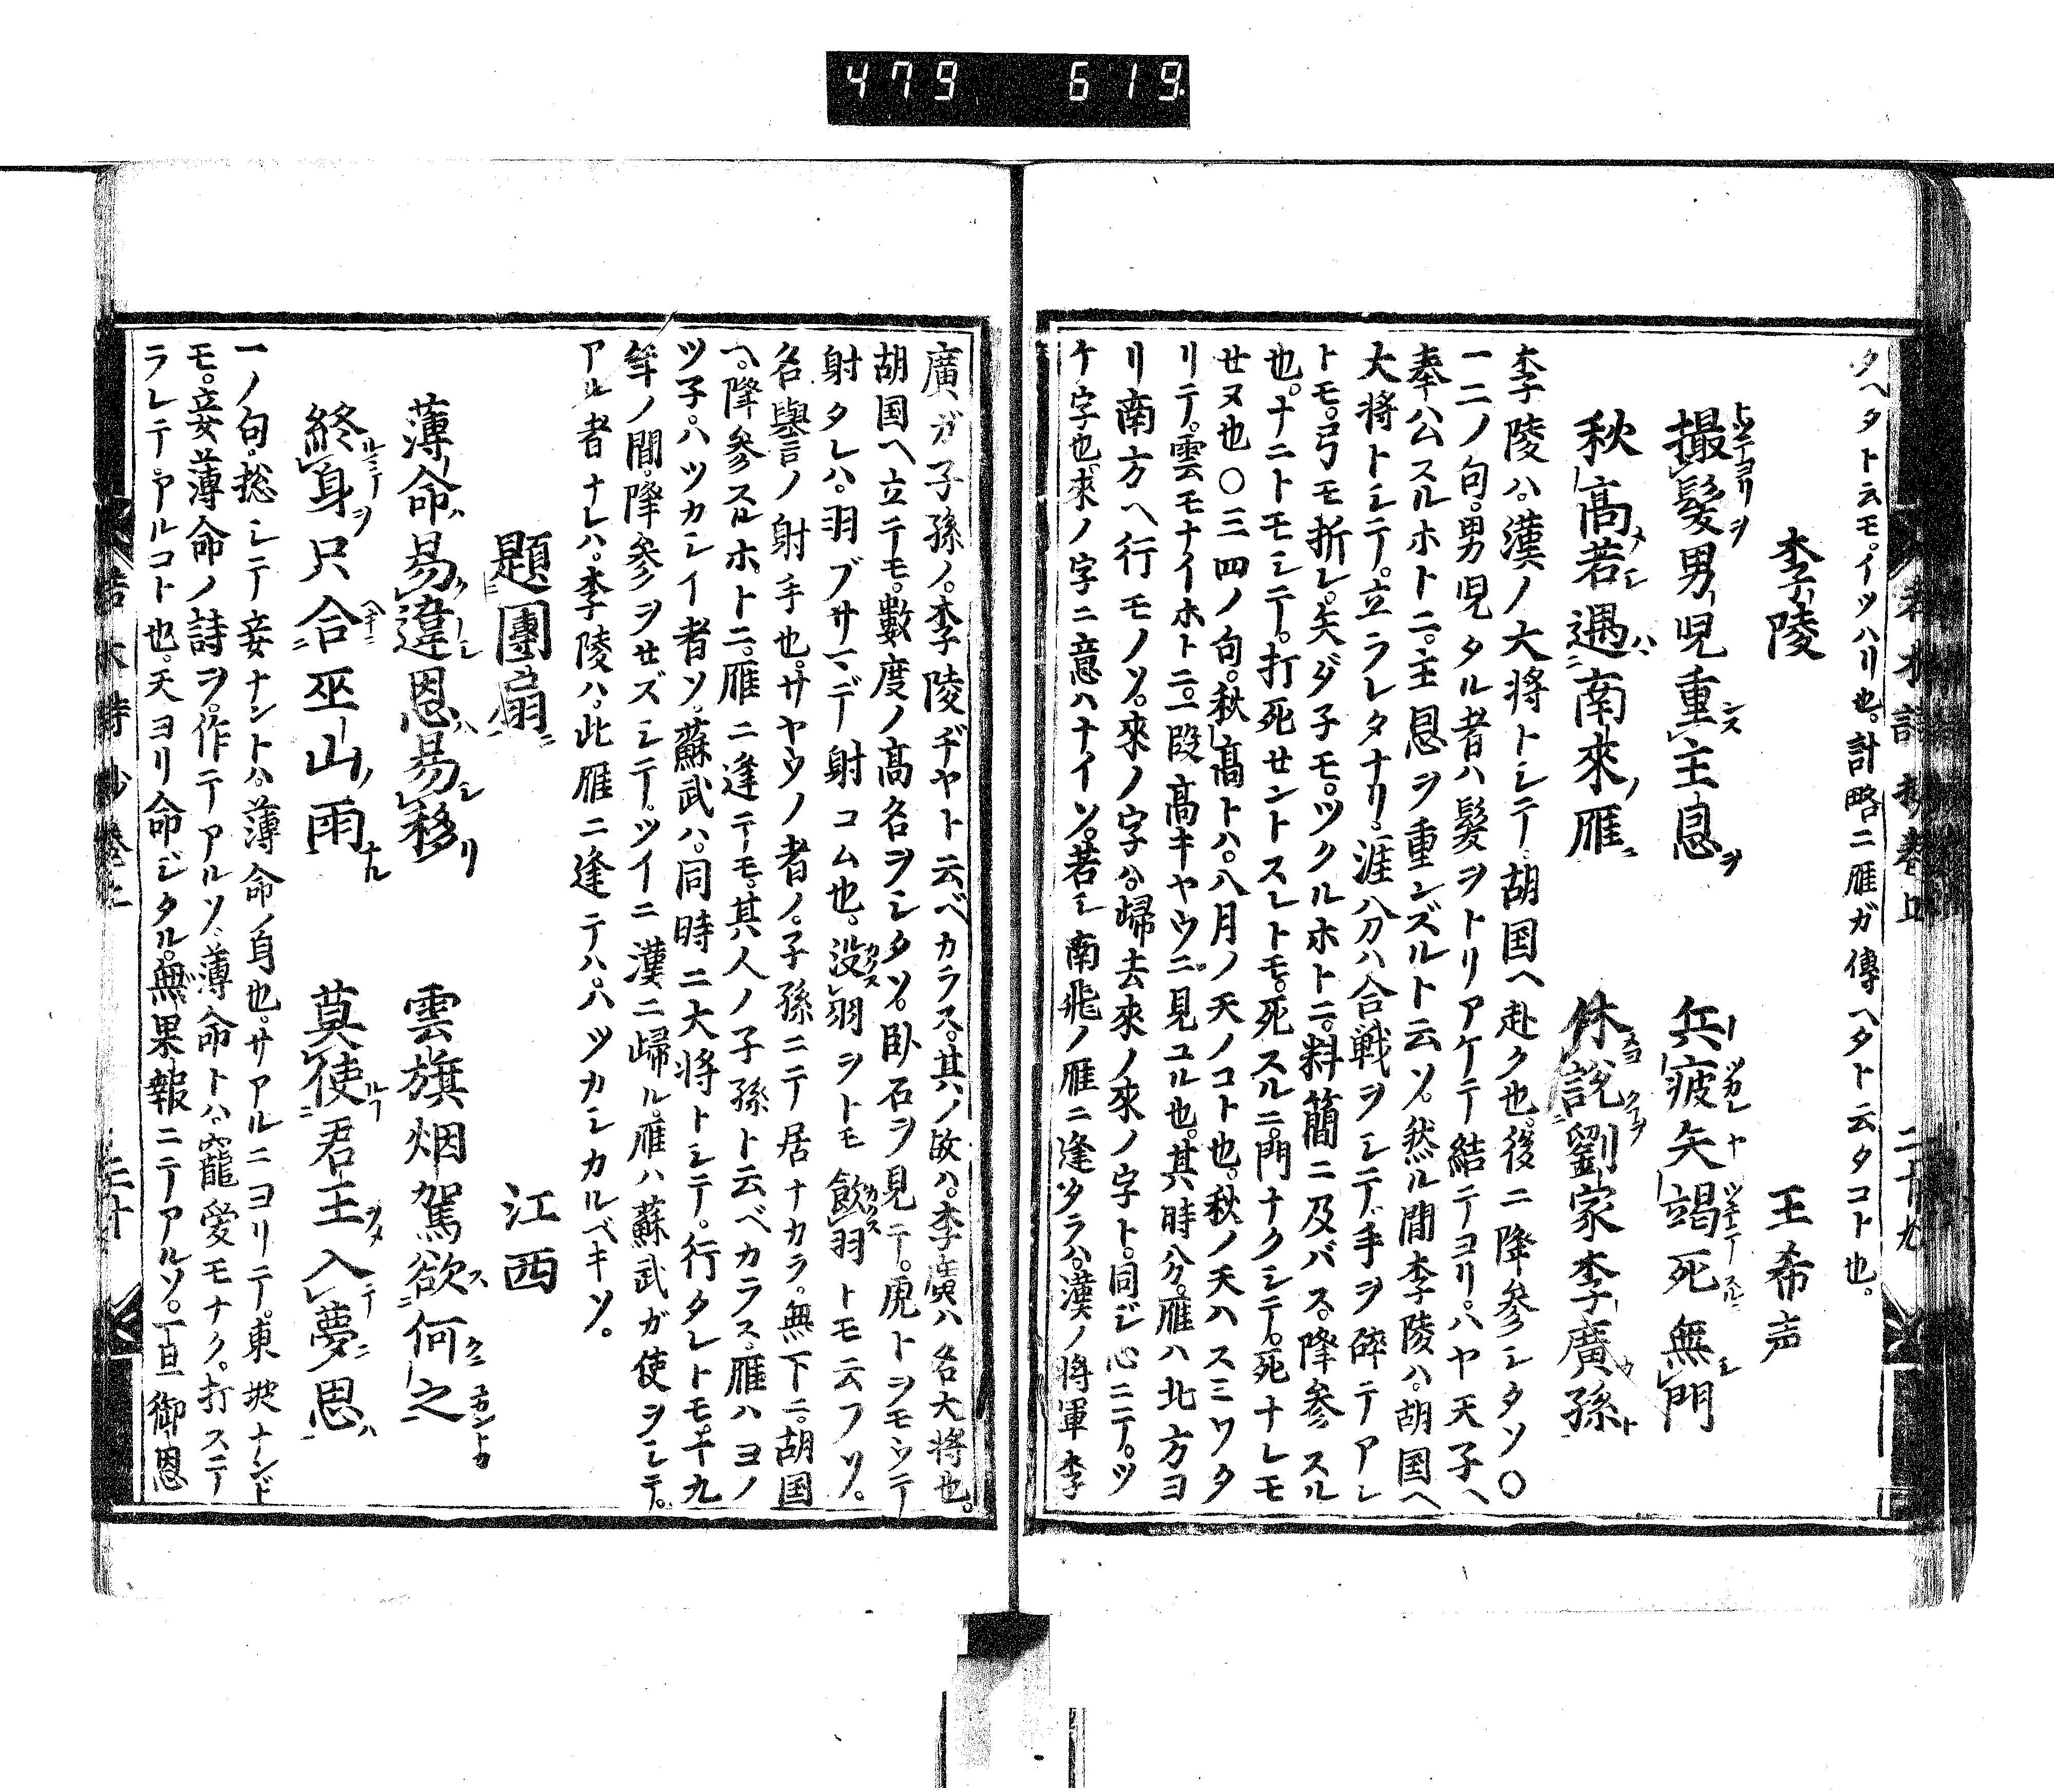 479 619
タヘタト云モ。イツハリ也。計略ニ雁ガ傳ヘタト云タコト也。
李陵 王希声
撮髮男児重主恩 兵疲矢竭死無門
秋高若遇南來雁 休說劉家李廣孫
李陵ハ。漢ノ大将トシテ。胡国ヘ赴ク也。後ニ降参シタソ〇
一二ノ句。男児タル者ハ髮ヲトリアケテ結テヨリ。ハヤ天子ヘ
奉公スルホトニ。主恩ヲ重ンズルト云ソ。然ル間李陵ハ。胡国ヘ
大将トシテ。立ラレタナリ。涯八分ハ合戦ヲシテ。手ヲ碎テアレ
トモ。弓モ折レ。矢ダ子モ。ツクルホトニ。料簡ニ及バス。降参スル
也。ナニトモシテ。打死セントスレトモ。死スルニ。門ナクシテ。死ナレモ
セヌ也〇三四ノ句。秋高トハ。八月ノ天ノコト也。秋ノ天ハスミワタ
リテ。雲モナイホトニ。一段高キヤウニ見ユル也。其時分。雁ハ北方ヨ
リ南方ヘ行モノソ。來ノ字ハ。歸去來ノ來ノ字ト。同ジ心ニテ。ツ
ケ字也。來ノ字ニ意ハナイソ。若シ南飛ノ雁ニ逢タラハ。漢ノ将軍李
廣ガ子孫ノ。李陵ヂヤト云ベカラス。其ノ故ハ。李廣ハ名大将也。
胡国ヘ立テモ。數度ノ高名ヲシタソ。臥石ヲ見テ。虎トヲモウテ
射タレハ。羽ブサマデ射コム也。没羽ヲトモ飲羽トモ云フソ。
名譽ノ射手也。サヤウノ者ノ。子孫ニテ居ナカラ。無下ニ。胡国
ヘ。降参スルホトニ。雁ニ逢テモ。其人ノ子孫ト云ベカラス。雁ハヨノ
ツ子。ハツカシイ者ソ。蘇武ハ。同時ニ大将トシテ。行タレトモ。十九
年ノ間。降参ヲセズシテ。ツイニ漢ニ歸ル。雁ハ蘇武ガ使ヲシテ。
アル者ナレハ。李陵ハ。此雁ニ逢テハ。ハツカシカルベキソ。
題團扇 江西
薄命易違恩易移 雲旗烟駕欲何之
終身只合巫山雨 莫使君王入夢恩
一ノ句。捴シテ妾ナントハ。薄命ノ身也。サアルニヨリテ。東坡ナンド
モ。妾薄命ノ詩ヲ。作テアルソ。薄命トハ。寵愛モナク。打ステ
ラレテ。アルコト也。天ヨリ命ジタル。無果報ニテアルソ。一旦御恩